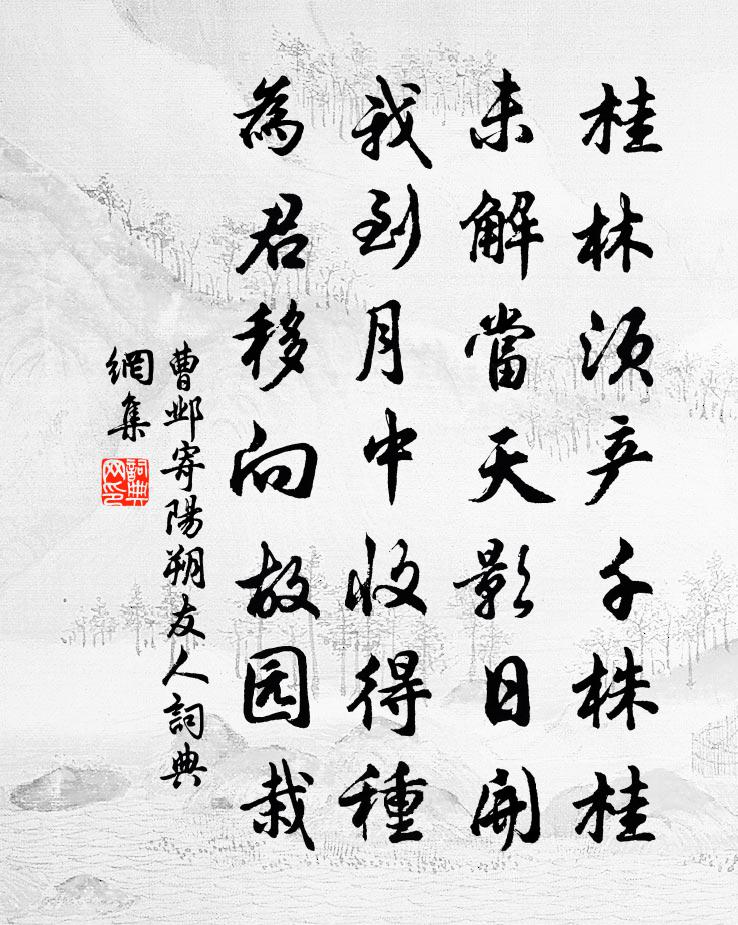 桂林须产千株桂
未解當天影日開
我到月中收得種
為君移向故园栽
曹邺寄陽朔友人詞典
網集
詞典
网印